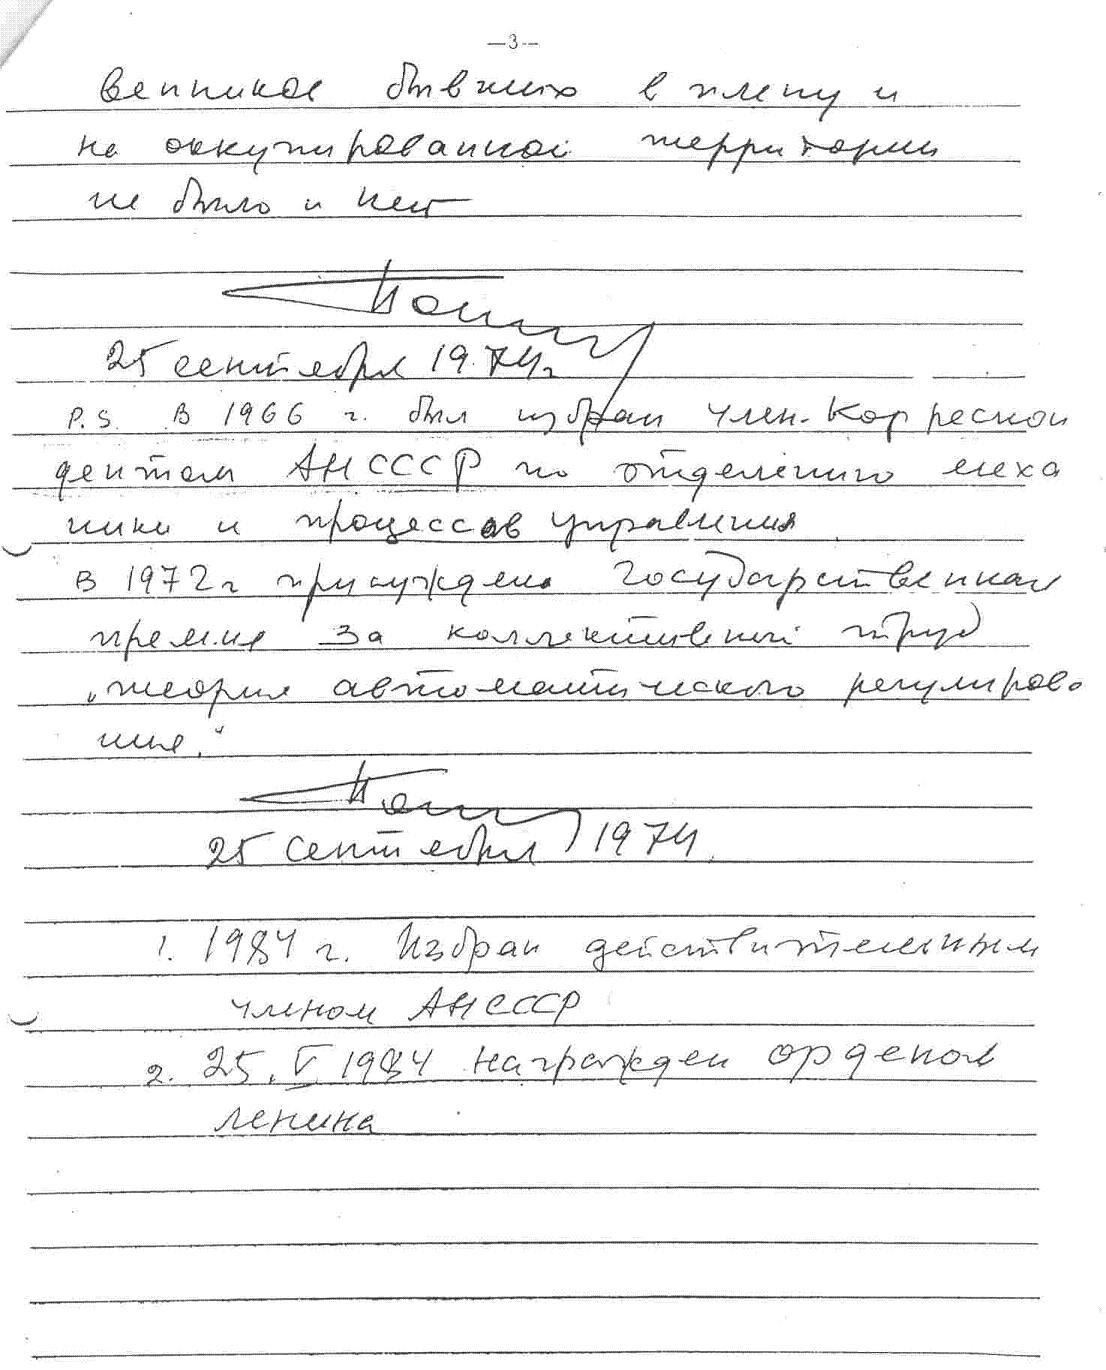 —3—
венников бывших в плену и
на оккупированной территории
не было и нет
25 сентября 1974г.
P.S. В 1966 г. был избран член-корреспон
дентом АН СССР по отделению меха
ники и процессов управления
В 1972г присуждена Государственная
премия за коллективный труд
„теория автоматического регулирова
ния."
25 сентября 1974.
1. 1984 г. Избран действительным
членом АН СССР
2. 25. V 1984 награжден орденом
Ленина